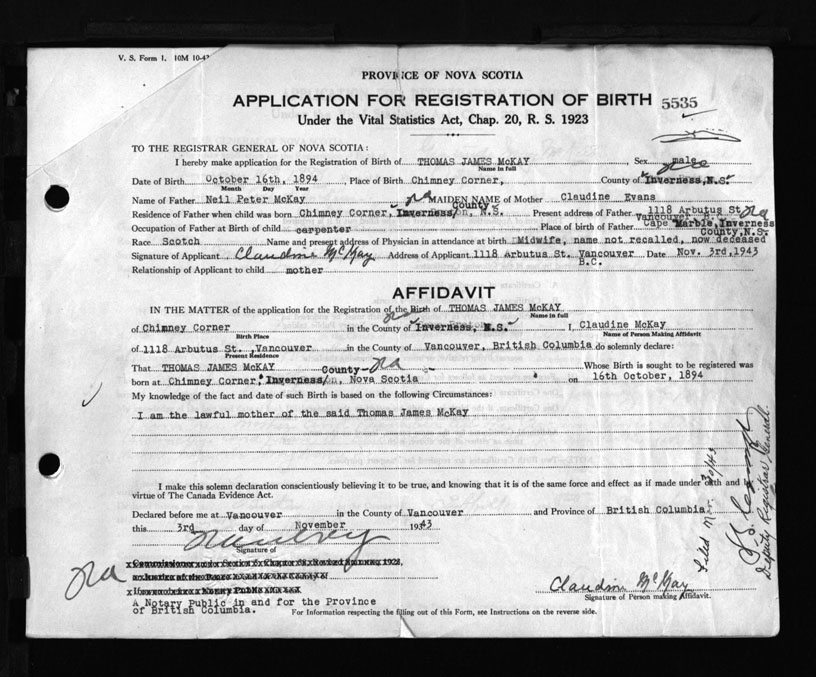 V. S. Form 1. 10M 10-43
PROVINCE OF NOVA SCOTIA
APPLICATION FOR REGISTRATION OF BIRTH 5535
Under the Vital Statistics Act, Chap. 20, R. S. 1923
TO THE REGISTRAR GENERAL OF NOVA SCOTIA:
I hereby make application for the Registration of Birth of THOMAS JAMES McKAY, Sex male
Name in full
Date of Birth October 16th, 1894, Place of Birth Chimney Corner, County of Inverness, N.S.
Month Day Year
Name of Father Neil Peter McKay MAIDEN NAME of Mother Claudine Evans
County
Residence of Father when child was born Chimney Corner, Inverness, N.S. Present address of Father 1118 Arbutus St.
Vancouver B.C.
Occupation of Father at Birth of child carpenter Place of birth of Father Cape Marble, Inverness
County, N.S.
Race Scotch Name and present address of Physician in attendance at birth Midwife, name not recalled, now deceased
Signature of Applicant Claudine McKay Address of Applicant 1118 Arbutus St. Vancouver Date Nov. 3rd, 1943
B.C.
Relationship of Applicant to child mother
AFFIDAVIT
IN THE MATTER of the application for the Registration of the Birth of THOMAS JAMES McKAY
Name in full
of Chimney Corner in the County of Inverness, N.S. I, Claudine McKay
Birth Place Name of Person Making Affidavit
of 1118 Arbutus St., Vancouver in the County of Vancouver, British Columbia do solemnly declare:
Present Residence
That THOMAS JAMES McKAY County Whose Birth is sought to be registered was
born at Chimney Corner, Inverness, Nova Scotia on 16th October, 1894
My knowledge of the fact and date of such Birth is based on the following Circumstances:
I am the lawful mother of the said Thomas James McKay
I make this solemn declaration conscientiously believing it to be true, and knowing that it is of the same force and effect as if made under oath and by
virtue of The Canada Evidence Act.
Declared before me at Vancouver in the County of Vancouver and Province of British Columbia
this 3rd day of November 1943
Signature of
A Notary Public in and for the Province
of British Columbia.
Claudine McKay
Signature of Person making Affidavit.
For Information respecting the filling out of this Form, see Instructions on the reverse side.
Filed
Deputy Registrar General